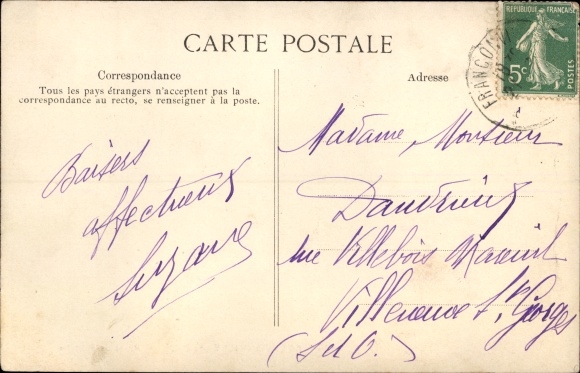 CARTE POSTALE
Correspondance
Tous les pays étrangers n'acceptent pas la
correspondance au recto, se renseigner à la poste.
Adresse
RÉPUBLIQUE FRANÇAISE
5c
POSTES
FRANCON
Baisers
affectueux
Suzanne
Madame Monsieur
rue Villebois Mareuil
Villeneuve St Georges
(S et O.)